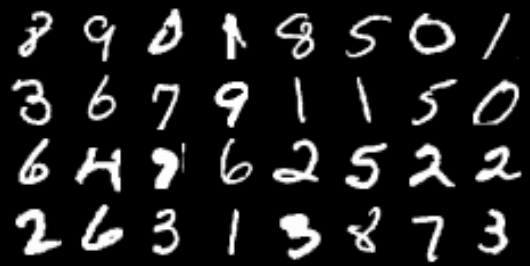 8 9 0 1 8 5 0 1
3 6 7 9 1 1 5 0
6 4 9 6 2 5 2 2
2 6 3 1 3 8 7 3